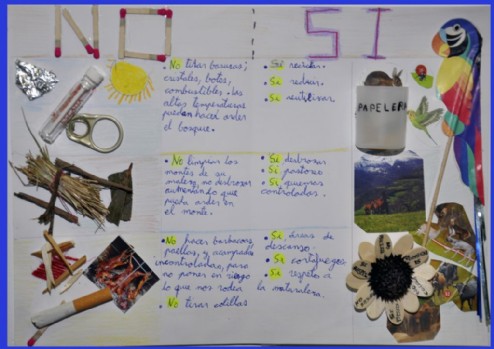 NO
SI
• No tirar basuras,
cristales, botes,
combustibles. Las
altas temperaturas
pueden hacer arder
el bosque.
• Si reciclar.
• Si reducir.
• Si reutilizar.
PAPELERA
• No limpiar los
montes de un
no desbrozar
que
pueda arder en
el monte.
• Si desbrozar
• Si pastoreo
• Si quemas
controladas.
• No hacer barbacoas,
paellas, y acampadas
incontroladas, para
no poner en riesgo
lo que nos rodea
• No tirar colillas
• Si áreas de
descanso.
• Si cortafuegos
• Si respeto a
la naturaleza.